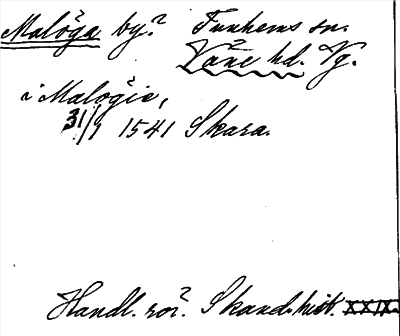 Malöga by? Tunhems sn.
Väne hd. Vg.
i Malögie,
31/1 1541 Skara.
Handl. rör. Skand. hist. XXIX